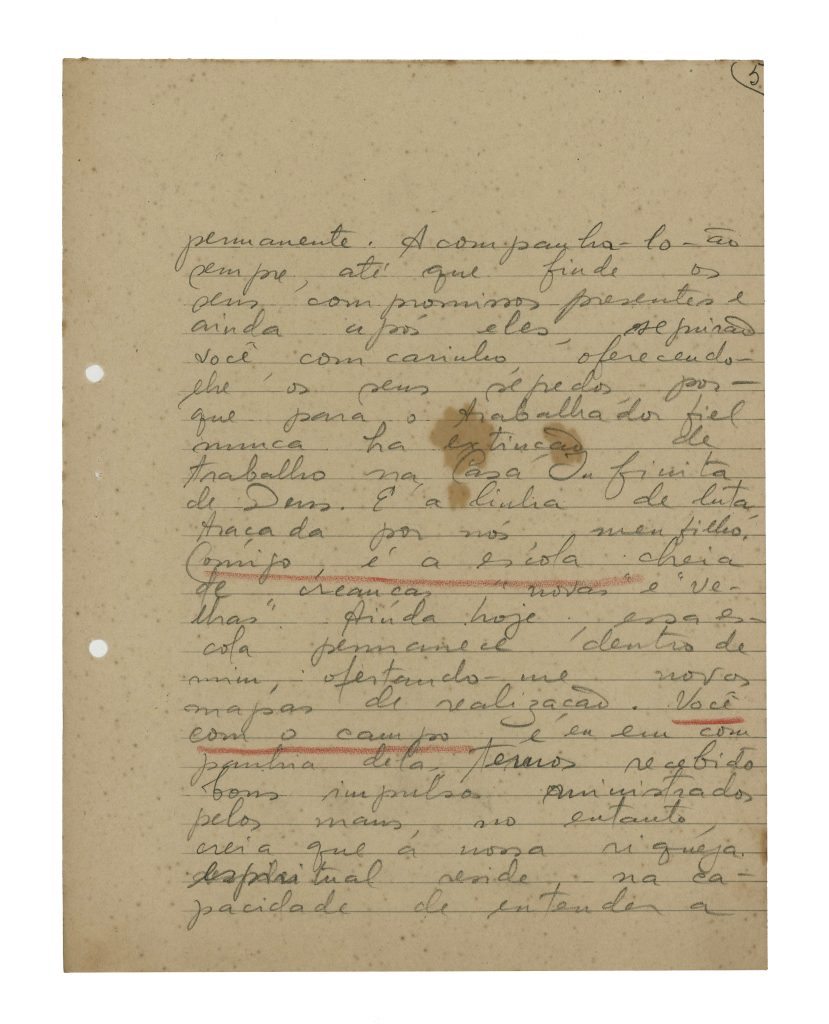 5
permanente. Acompanha-lo-ão
sempre, até que finde os
seus compromissos presentes e
ainda após eles, seguirão
você com carinho, oferecendo-
lhe os seus
que para o trabalhador fiel
nunca ha extinção de
trabalho na Casa Infinita
de Deus. E' a linha de luta,
traçada por nós, meu filho.
Comigo, é a escola cheia
de creanças "novas" e "ve-
lhas". Ainda hoje, essa es-
cola permanece dentro de
mim, ofertando-me novos
mapas de realização. Você
com o campo e eu em com
panhia dela, temos recebido
bons impulsos ministrados
pelos maus, no entanto,
creia que a nossa riqueza
espiritual reside na ca-
pacidade de entender a